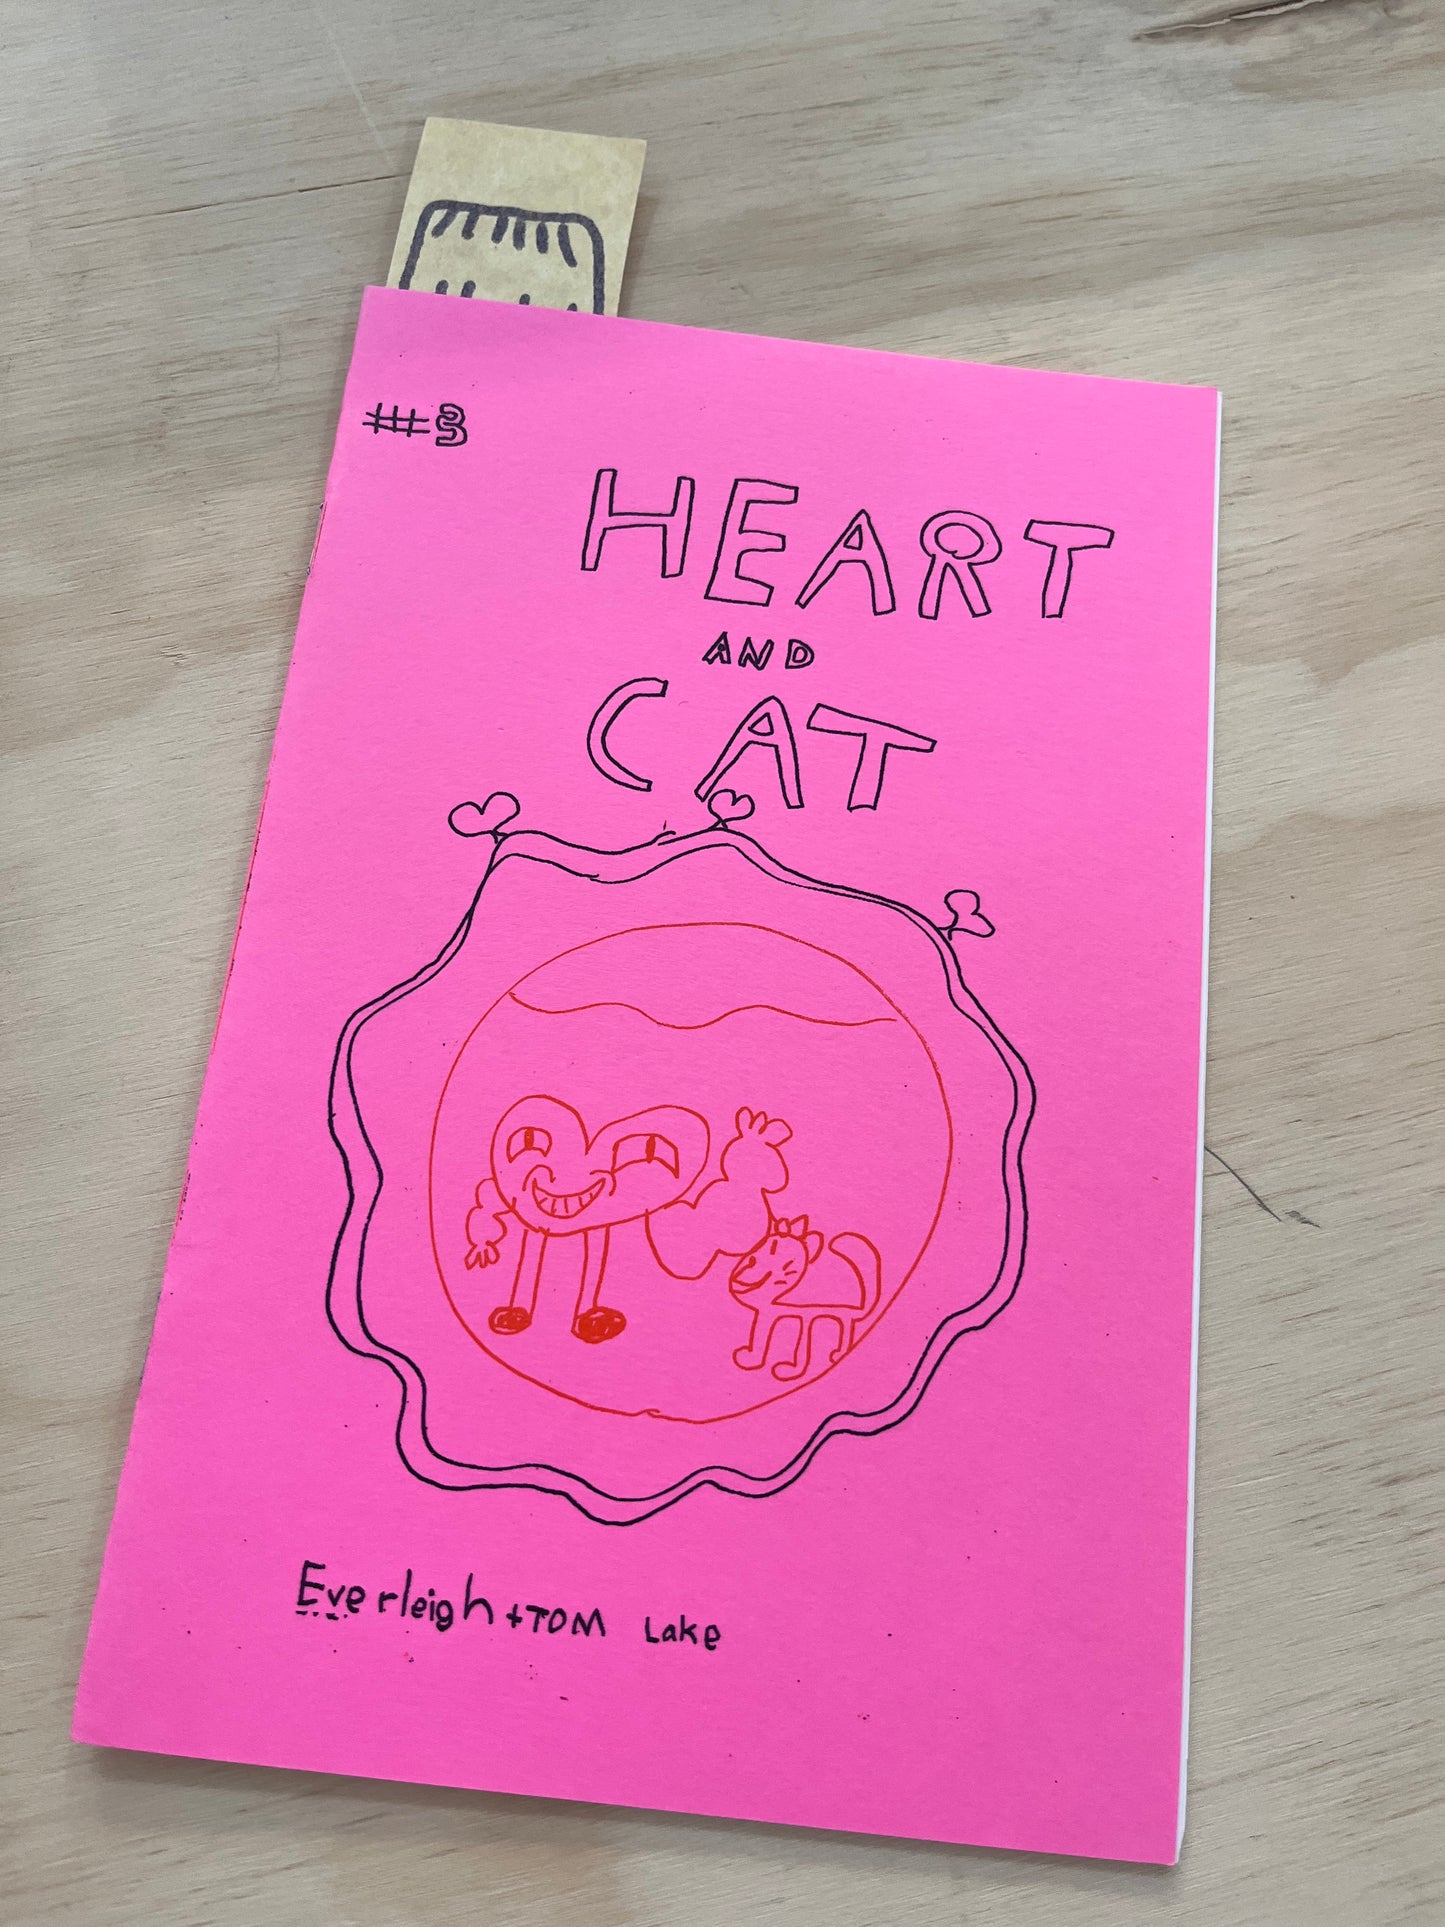 #3
HEART
AND
CAT
Everleigh + TOM Lake